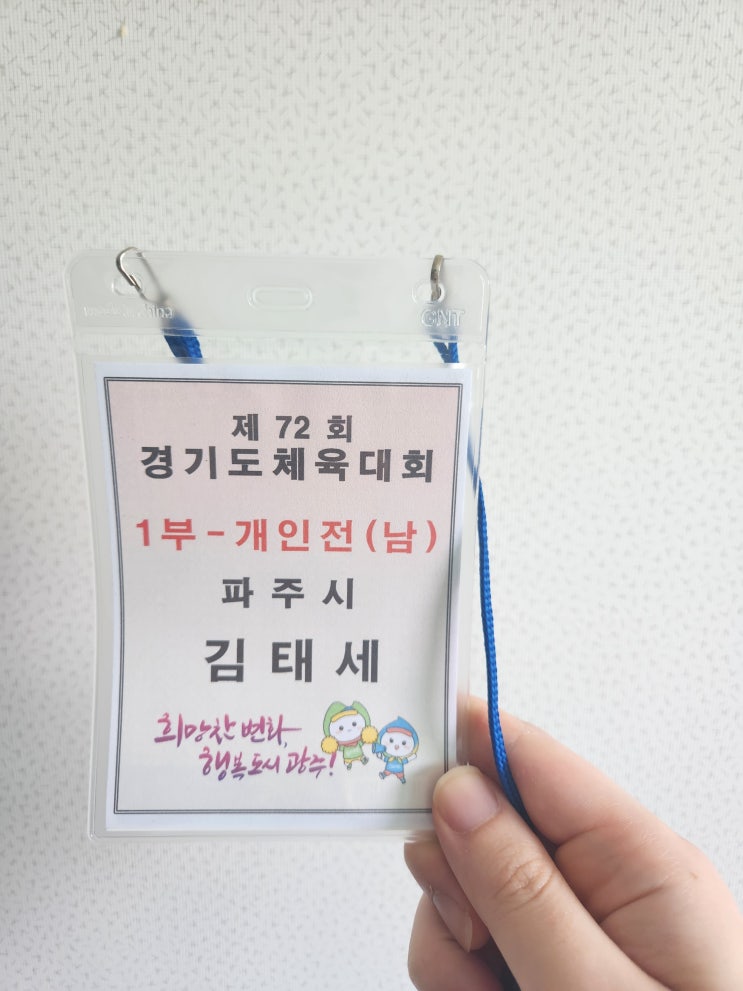 made in china
GNT
제 72 회
경기도체육대회
1부-개인전(남)
파주시
김태세
희망찬 변화,
행복도시 광주!